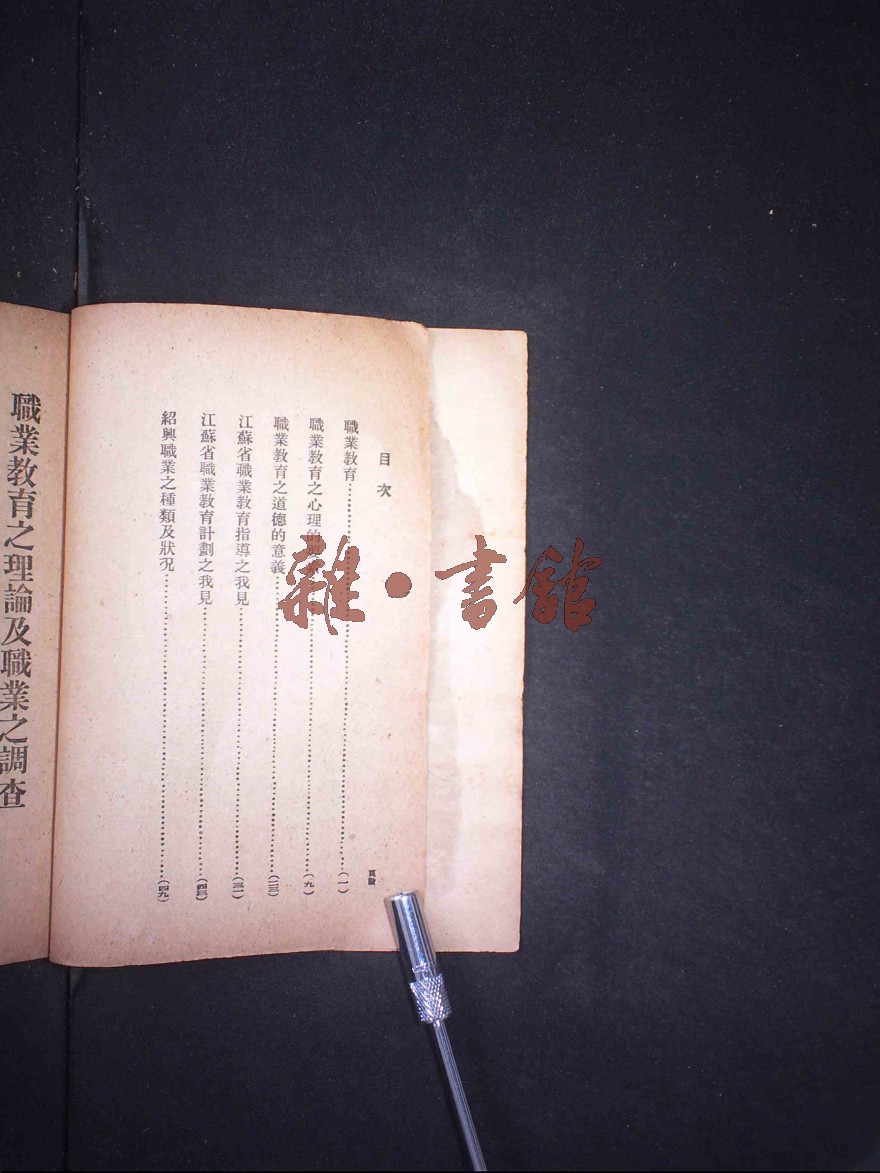 目次
頁數
職業教育……(一)
職業教育之心理的……(九)
職業教育之道德的意義……(二三)
江蘇省職業教育指導之我見……(三一)
江蘇省職業教育計劃之我見……(四三)
紹興職業之種類及狀況……(四九)
職業教育之理論及職業之調查
雜·書館